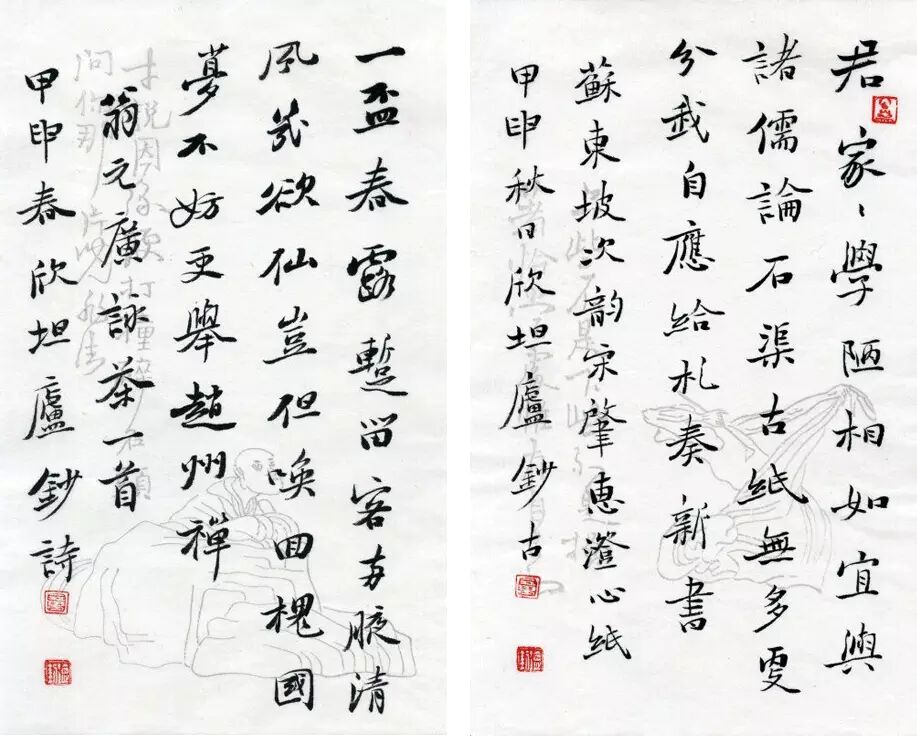 君家〻學陋相如宜與
諸儒論石渠古紙無多更
分我自應給札奏新書
蘇東坡次韵宋肇惠澄心紙
甲申秋日欣坦廬鈔古
一盃春露暫留客两腋清
風幾欲仙豈但喚回槐國
夢不妨更舉趙州禪
翁元廣詠茶一首
甲申春欣坦廬鈔詩